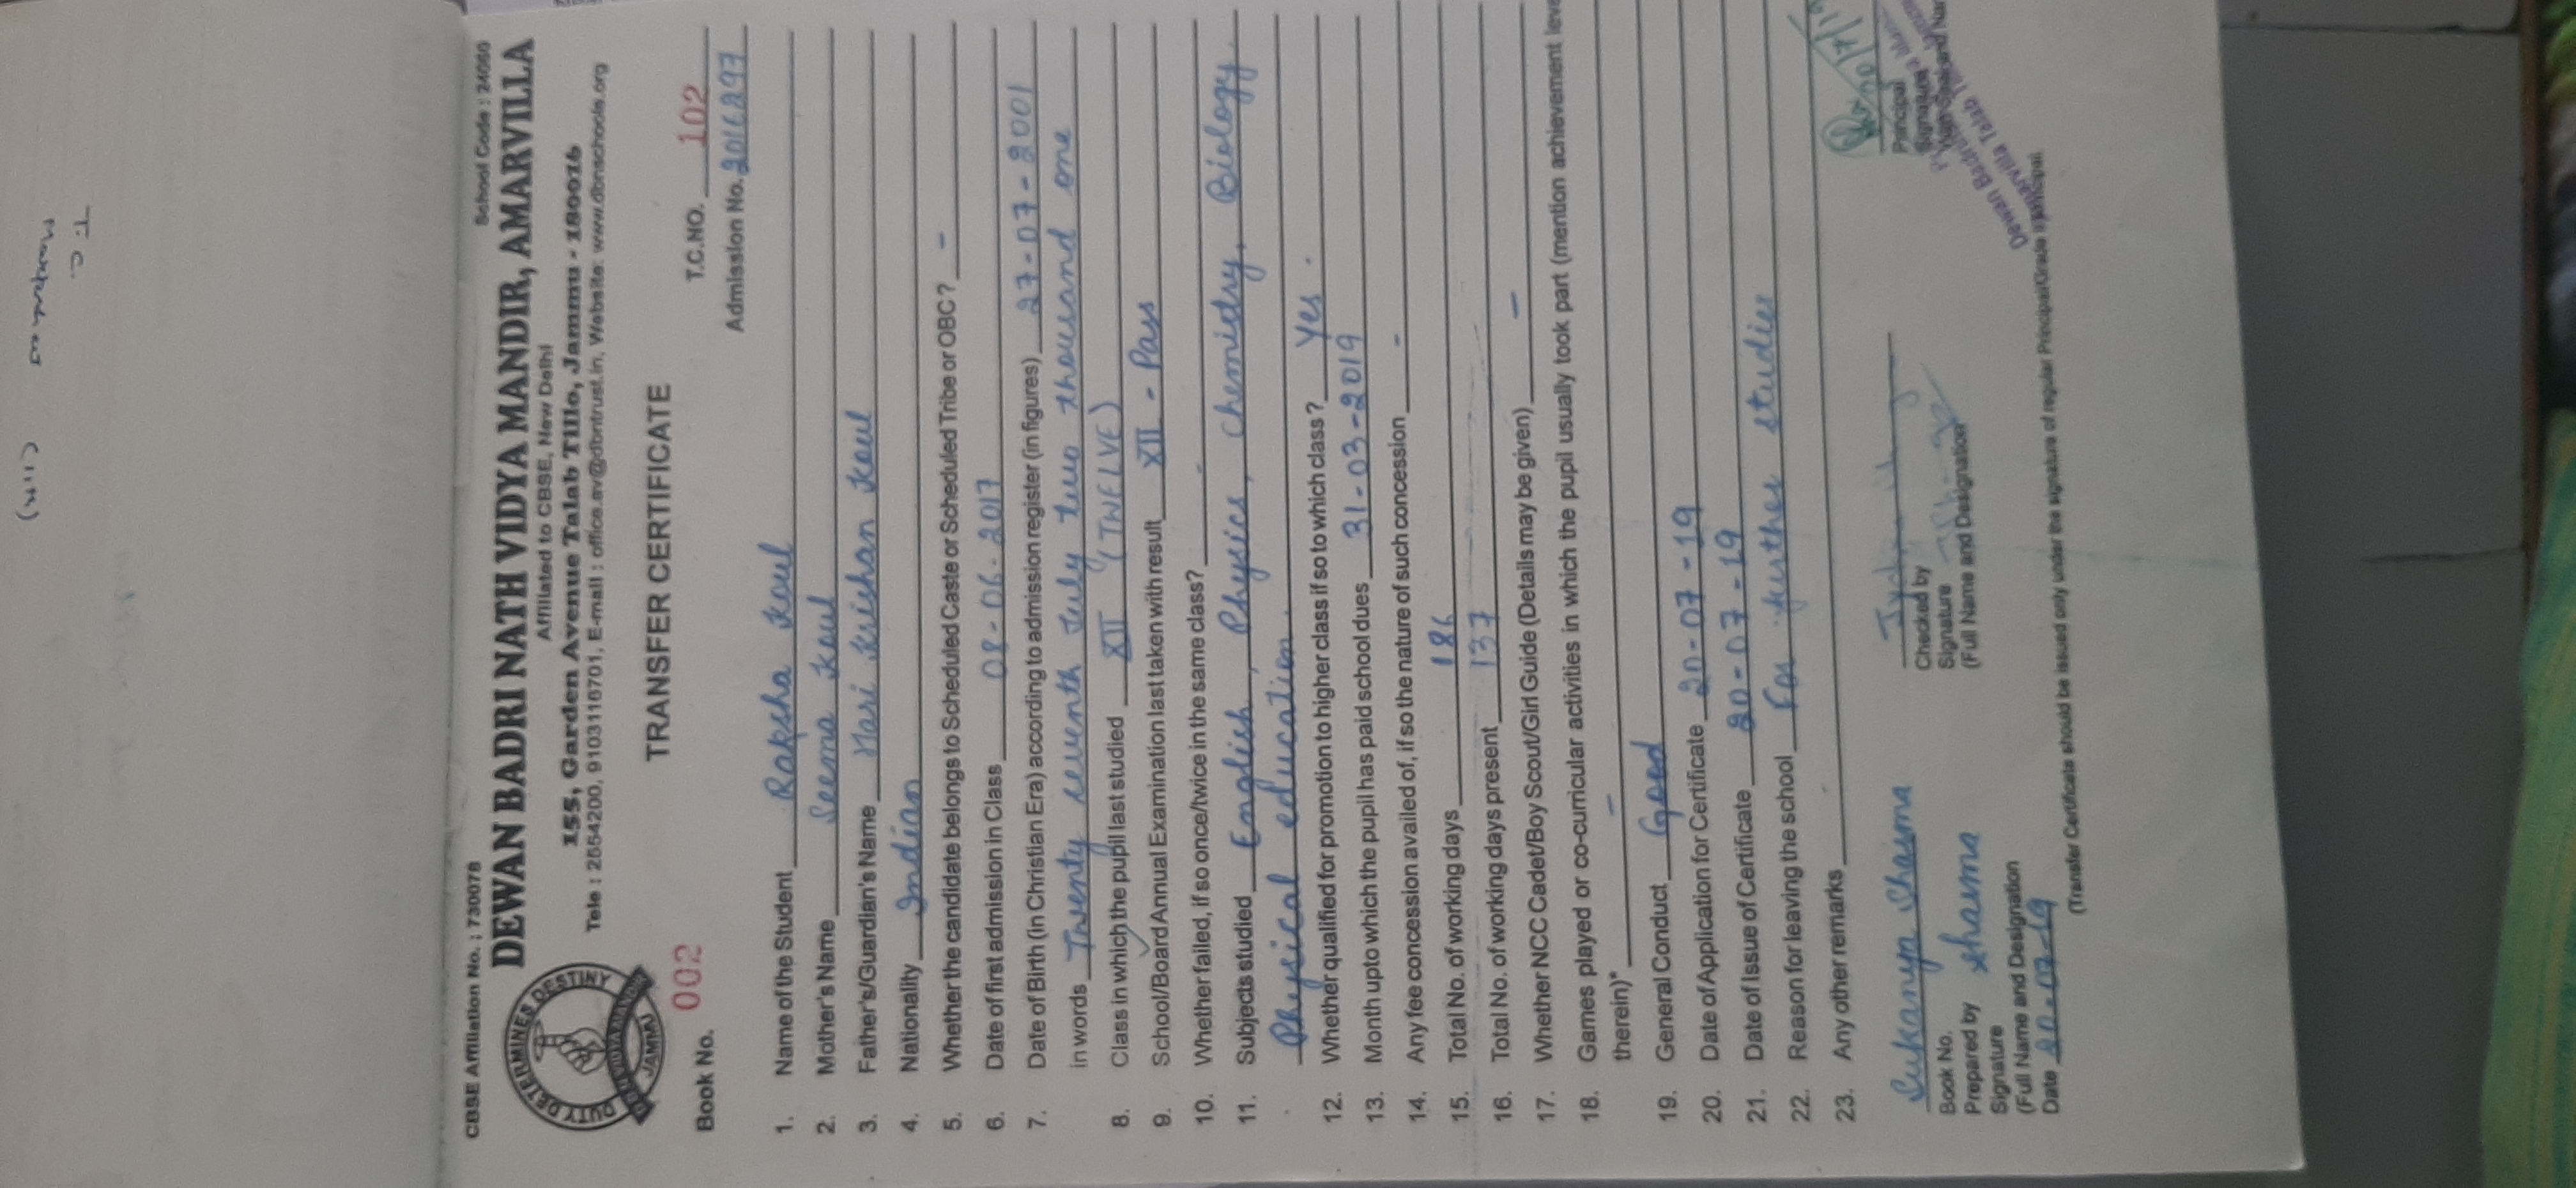 (XII)
T C
CBSE Affiliation No. : 730078 School Code : 24060
DEWAN BADRI NATH VIDYA MANDIR, AMARVILLA
Affiliated to CBSE, New Delhi
155, Garden Avenue Talab Tillo, Jammu - 180016
Tele : 2554200, 9103116701, E-mail : office.av@dbntrust.in, Website: www.dbnschools.org
DUTY DETERMINES DESTINY
JAMMU
TRANSFER CERTIFICATE
Book No. 002 T.C.NO. 102
Admission No. 2016297
1. Name of the Student Raksha Koul
2. Mother's Name Seema Koul
3. Father's/Guardian's Name Hari Krishan Koul
4. Nationality Indian
5. Whether the candidate belongs to Scheduled Caste or Scheduled Tribe or OBC? -
6. Date of first admission in Class 08-06-2017
7. Date of Birth (in Christian Era) according to admission register (in figures) 27-07-2001
in words Twenty seventh July two thousand one
8. Class in which the pupil last studied XII (TWELVE)
9. School/Board Annual Examination last taken with result XII - Pass
10. Whether failed, if so once/twice in the same class? -
11. Subjects studied English, Physics, Chemistry, Biology,
Physical education.
12. Whether qualified for promotion to higher class if so to which class? Yes.
13. Month upto which the pupil has paid school dues 31-03-2019
14. Any fee concession availed of, if so the nature of such concession -
15. Total No. of working days 186
16. Total No. of working days present 137
17. Whether NCC Cadet/Boy Scout/Girl Guide (Details may be given) -
18. Games played or co-curricular activities in which the pupil usually took part (mention achievement leve
therein)* -
19. General Conduct Good
20. Date of Application for Certificate 20-07-19
21. Date of Issue of Certificate 20-07-19
22. Reason for leaving the school For further studies
23. Any other remarks
Sukanya Sharma
Book No.
Prepared by Sharma
Signature
(Full Name and Designation
Date 20-07-19
Checked by
Signature
(Full Name and Designation
Principal
Signature
(Transfer Certificate should be issued only under the signature of regular Principal/Grade II principal.